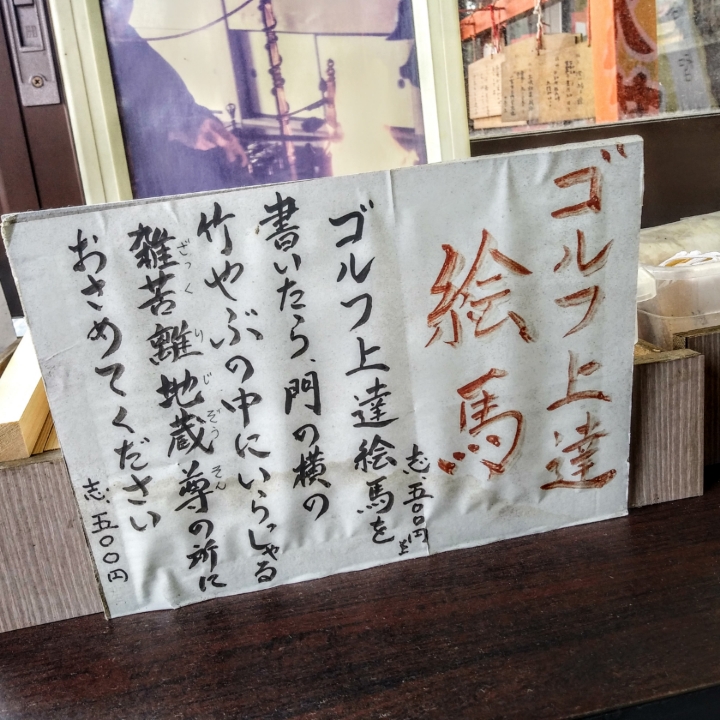 ゴルフ上達
絵馬
志、五〇〇円上
ゴルフ上達絵馬を
書いたら、門の横の
竹やぶの中にいらっしゃる
雑苦離地蔵尊の所に
ざっくりじぞうそん
おさめてください
志、五〇〇円